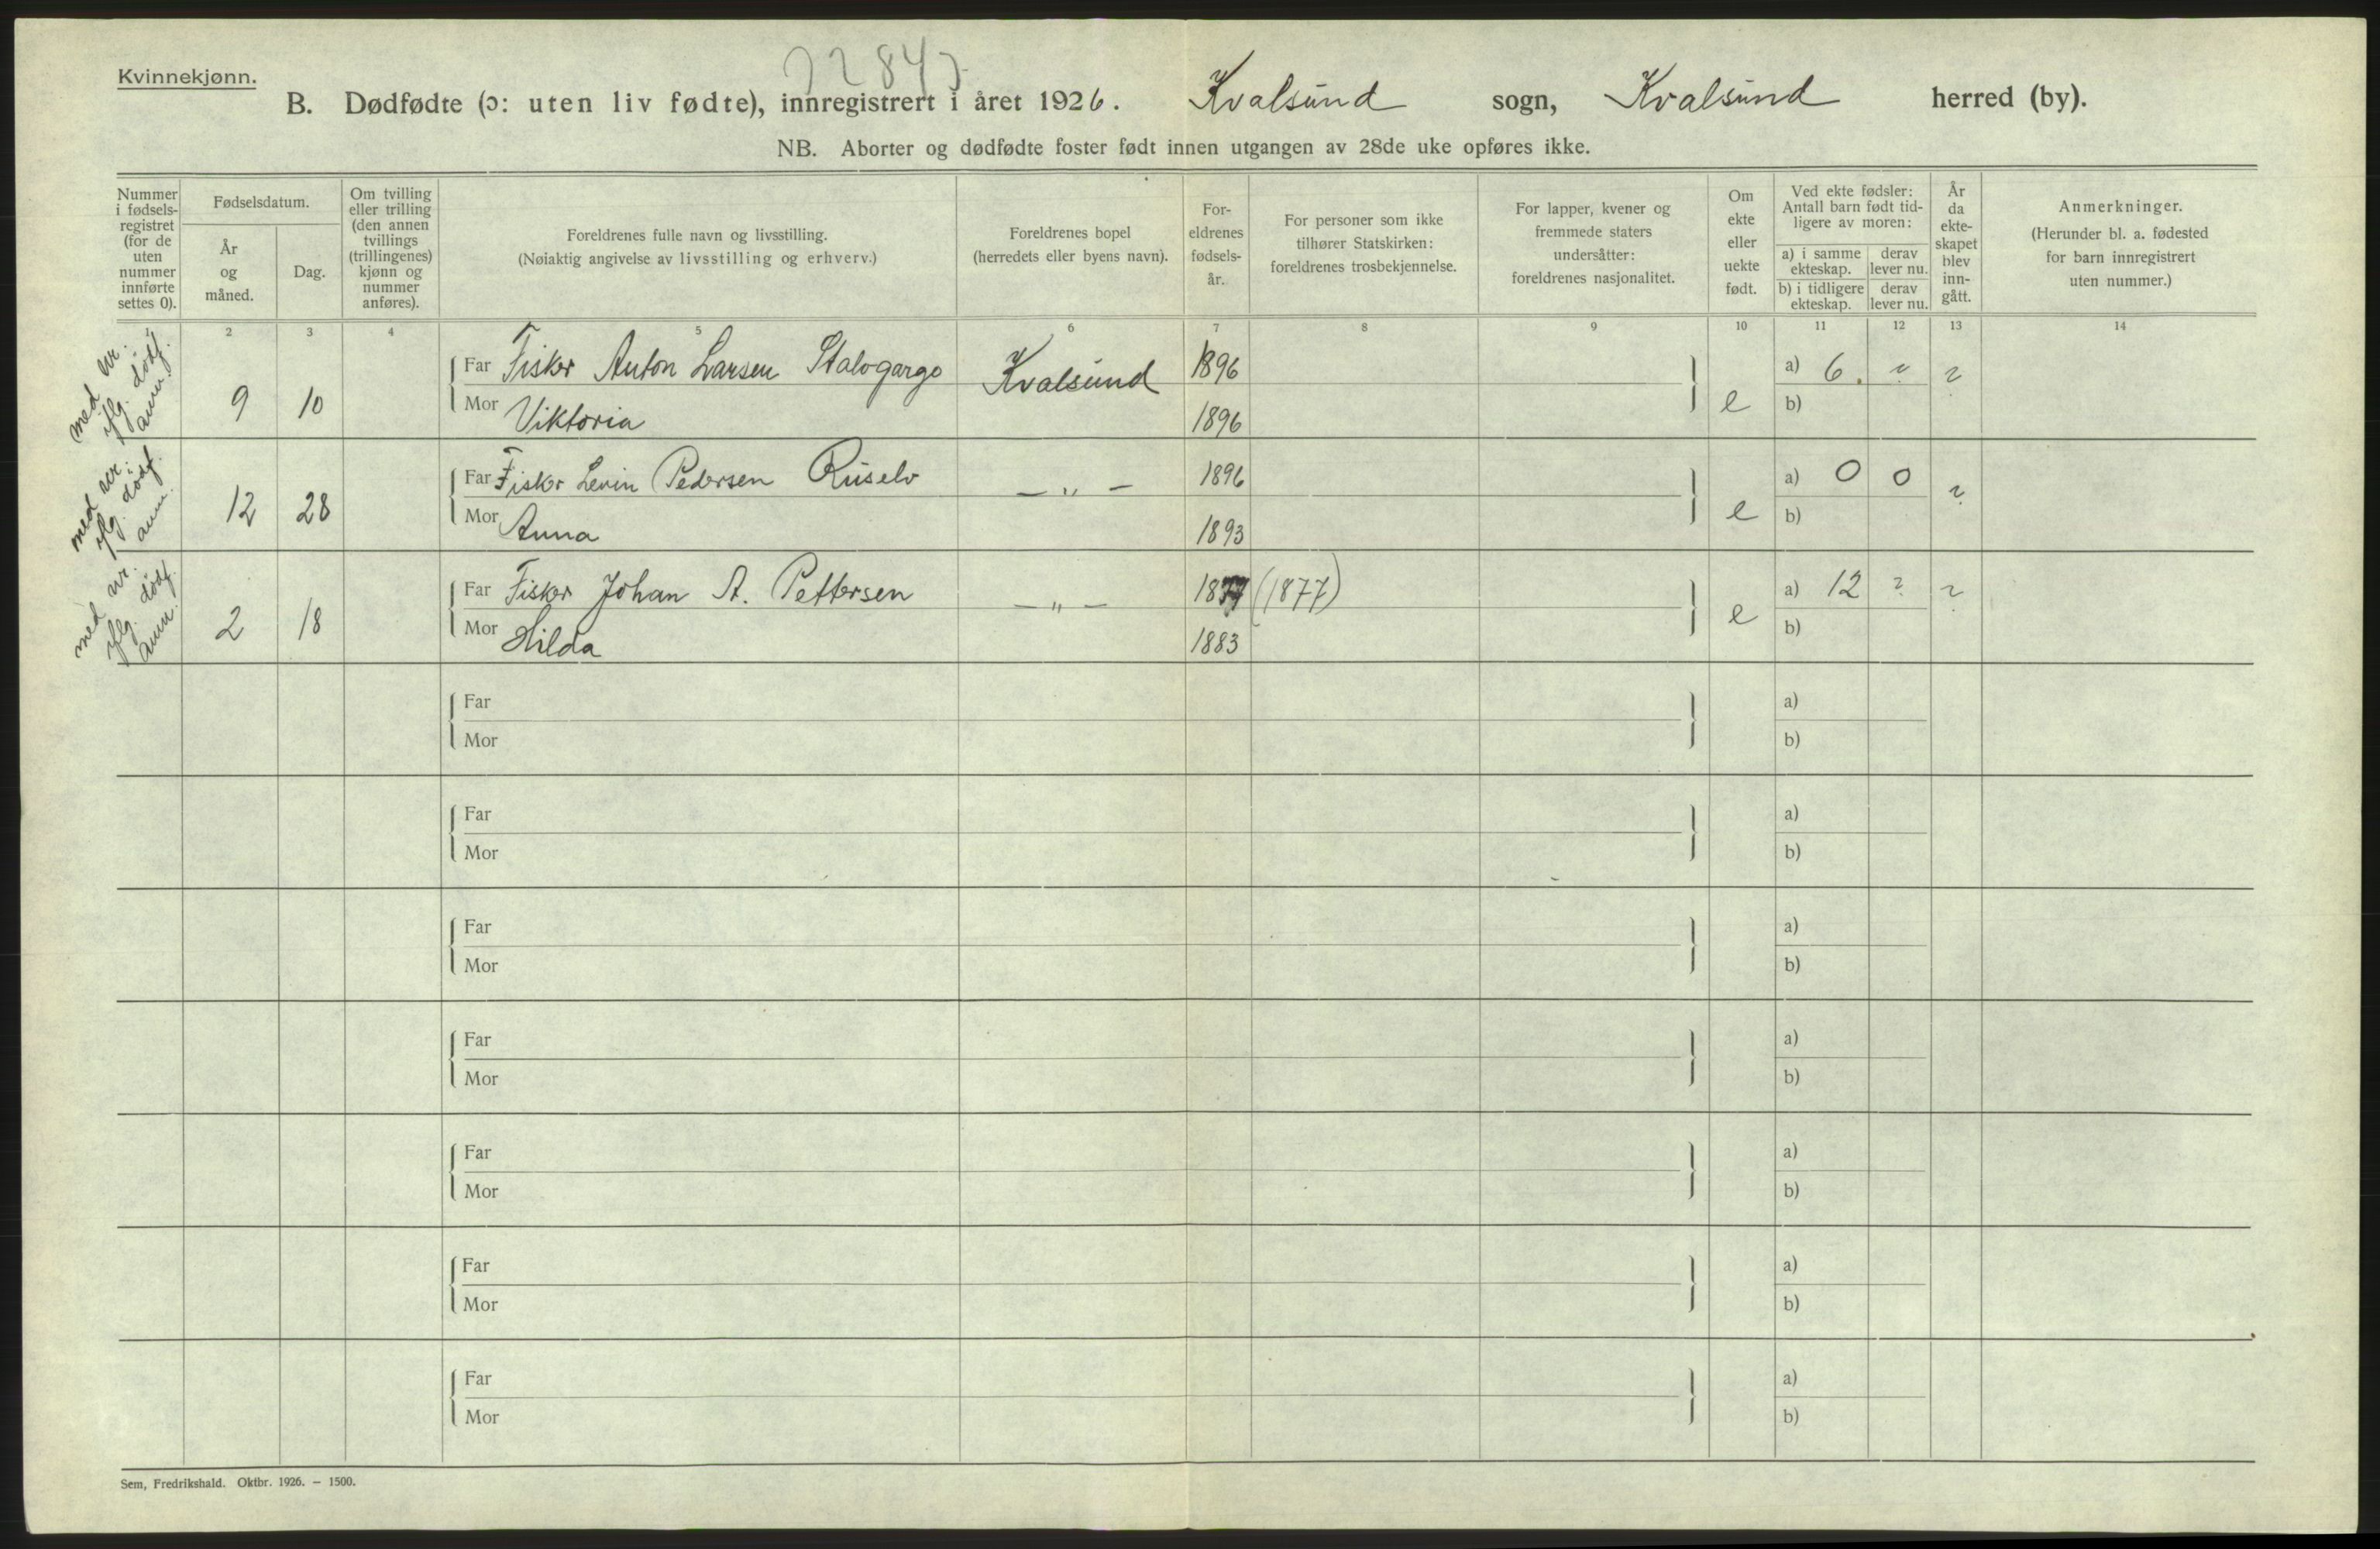 Kvinnekjønn.
B. Dødfødte (ɔ: uten liv fødte), innregistrert i året 1926. Kvalsund sogn, Kvalsund herred (by).
NB. Aborter og dødfødte foster født innen utgangen av 28de uke opføres ikke.
Nummer i fødsels-registret (for de uten nummer innførte settes 0).
Fødselsdatum.
År og måned.
Dag.
Om tvilling eller trilling (den annen tvillings (trillingenes) kjønn og nummer anføres).
Foreldrenes fulle navn og livsstilling.
(Nøiaktig angivelse av livsstilling og erhverv.)
Foreldrenes bopel
(herredets eller byens navn).
For-eldrenes fødsels-år.
For personer som ikke tilhører Statskirken: foreldrenes trosbekjennelse.
For lapper, kvener og fremmede staters undersåtter: foreldrenes nasjonalitet.
Om ekte eller uekte født.
Ved ekte fødsler: Antall barn født tid-ligere av moren:
a) i samme ekteskap. derav lever nu.
b) i tidligere ekteskap. derav lever nu.
År da ekte-skapet blev inn-gått.
Anmerkninger.
(Herunder bl. a. fødested for barn innregistrert uten nummer.)
1 2 3 4 5 6 7 8 9 10 11 12 13 14
med nr. iflg. dødf. anm.
9 10
Far Fisker Anton Larsen Stalogargo Kvalsund 1896 e a) 6. ? ?
Mor Viktoria 1896 b)
med nr. iflg. dødf. anm.
12 28
Far Fisker Levin Pedersen Ruselv — " — 1896 e a) 0 0 ?
Mor Anna 1893 b)
med nr. iflg. dødf. anm.
2 18
Far Fisker Johan A. Pettersen — " — 1877 (1877) e a) 12 ? ?
Mor Hilda 1883 b)
Far a)
Mor b)
Far a)
Mor b)
Far a)
Mor b)
Far a)
Mor b)
Far a)
Mor b)
Far a)
Mor b)
Far a)
Mor b)
Sem, Fredrikshald. Oktbr. 1926. — 1500.